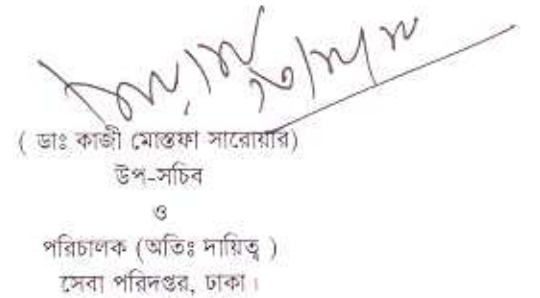 ( ডাঃ কাজী মোস্তফা সারোয়ার)
উপ-সচিব
ও
পরিচালক (অতিঃ দায়িত্ব )
সেবা পরিদপ্তর, ঢাকা।